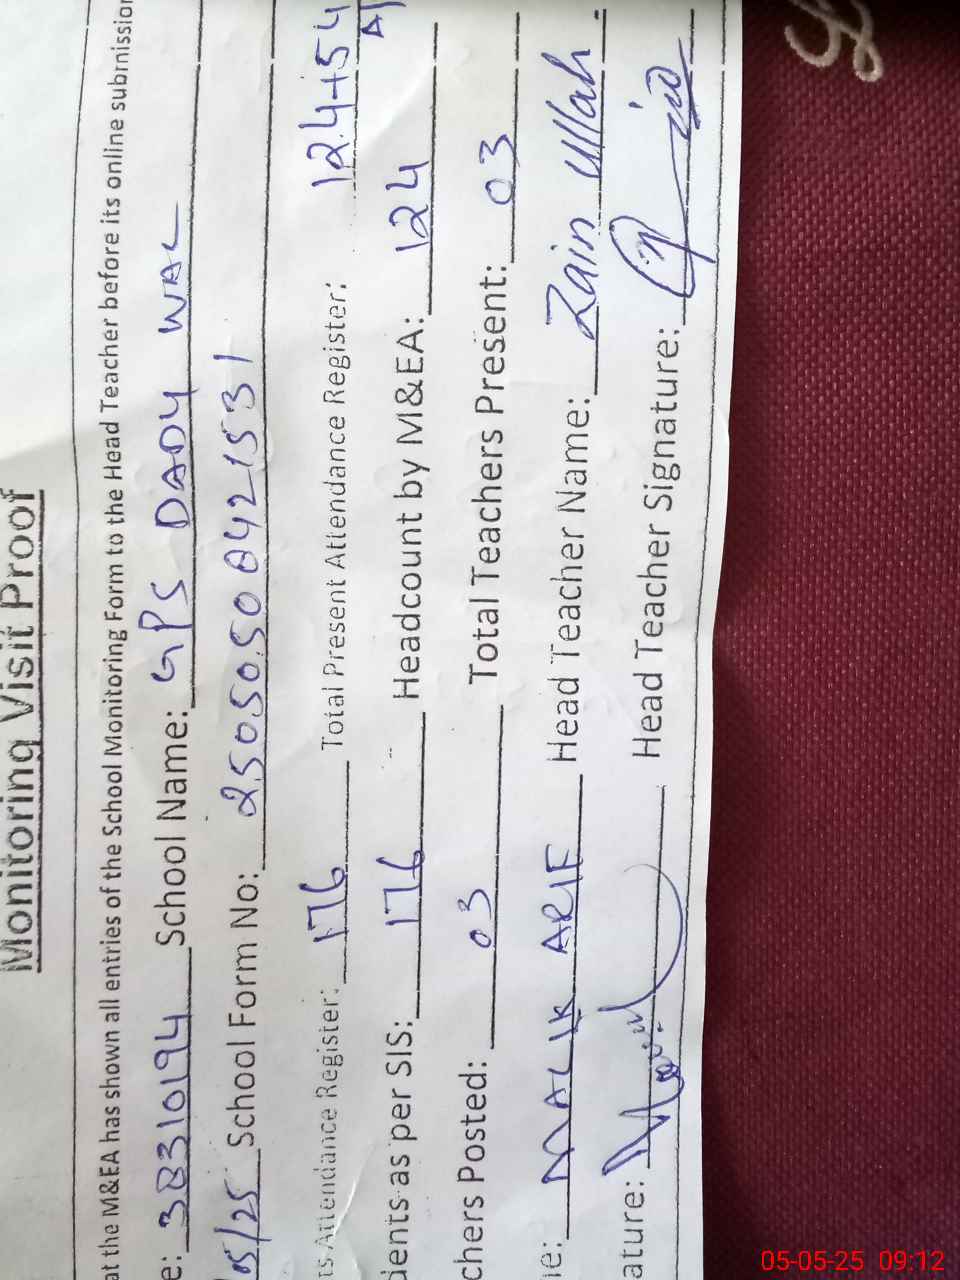 Monitoring Visit Proof
at the M&EA has shown all entries of the School Monitoring Form to the Head Teacher before its online submission
e: 38310194 School Name: GPS DADY WAL
05/25 School Form No: 25050500421531
ts Attendance Register: 176 Total Present Attendance Register: 124+54
dents as per SIS: 176 Headcount by M&EA: 124
chers Posted: 03 Total Teachers Present: 03
ne: MALIK ARIF Head Teacher Name: Zain Ullah
ature: Head Teacher Signature:
05-05-25 09:12